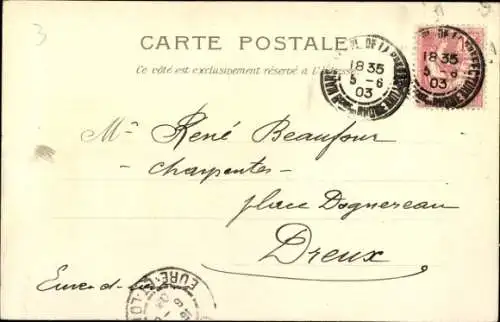 3
CARTE POSTALE
Ce côté est exclusivement réservé à l'adresse
PL. DE LA PRÉFECTURE
18 35
5 - 6
03
18 35
5 - 6
03
Mr René Beaufour
Charpentes
place Dagnereau
Dreux
Eure-et-
EURE